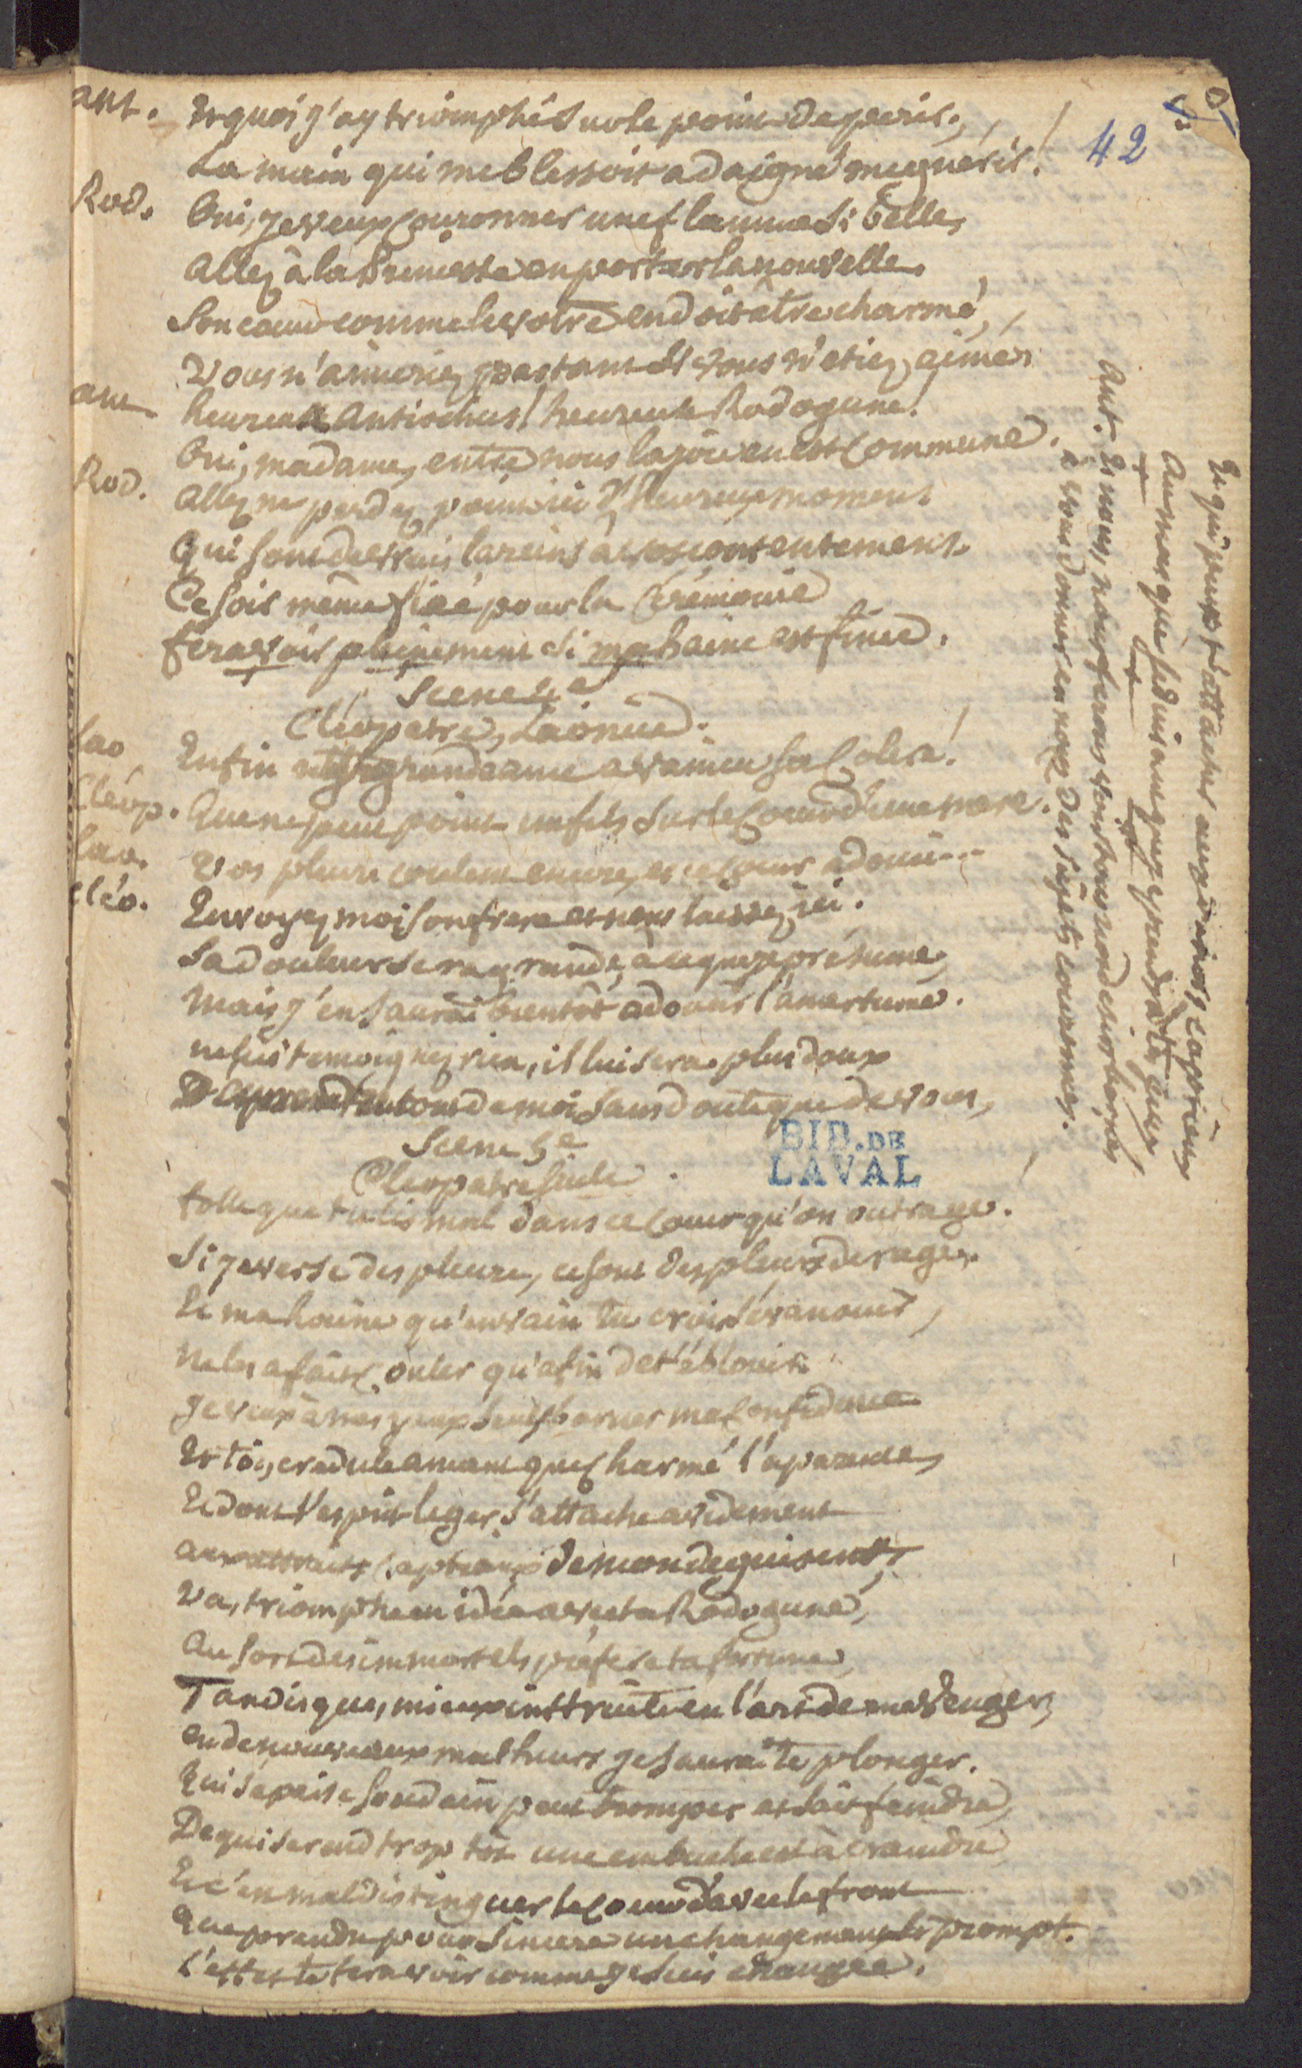 42
ant. Et quoi j'ay triomphé sur le point de perir,
La main qui me blessoit a daigné me guérir!
Rod. Oui, je veux couronner une flamme si belle,
Allez à la Princesse en porter la nouvelle.
Son cœur comme le votre en doit être charmé,
Vous n'aimeriez pas tant si vous n'etiez aimé.
ant heureux Antiochus! heureuse Rodogune!
Oui, madame, entre nous la joie en est commune.
Rod. Allez ne perdez point ici d'heureux momens
Qui sont de vrais larcins à vos contentemens.
Ce soir même fixé pour la Cérémonie
fera voir pleinement si ma haine est finie.
Scene 4e
Cléopatre, Laonice.
Lao. Enfin grande ame a vaincu sa colere!
Cléop. Que ne peut point un fils sur le cœur d'une mere.
Lao. Vos pleurs coulent encore, et ce cœur adouci...
Cléo. Envoyez moi son frere et nous laissez ici.
Sa douleur sera grande, à ce que je présume,
Mais j'en saurai bientôt adoucir l'amertume.
ne lui temoignez rien, il lui sera plus doux
D'apprendre tout de moi sans doute que de vous,
Scene 5e
Cléopatre seule.
BIB. DE
LAVAL
folle que tu lis mal dans ce cœur qu'on outrage.
Si je verse des pleurs, ce sont des pleurs de rage,
Et ma haine qu'en vain tu crois s'evanouir,
Ne les a fait couler qu'afin de t'éblouir
Je veux à mes yeux seuls borner ma confidence
Et toi, credule amant que charme l'aparence,
Et dont l'esprit leger s'attache avidement
aux attraits captieux de mon deguisement,
Va, triomphe en idée avec ta Rodogune,
Au sort des immortels préfere ta fortune,
Tandis que, mieux instruite en l'art de me venger,
en de nouveaux malheurs je saurai te plonger.
Qui s'apaise soudain peut tromper et sait feindre,
De qui se rend trop tôt une embuche est à craindre
Et c'en mal distinguer le cœur d'avec le front
Que prendre pour sincere un changement si prompt.
L'effet te fera voir comme je suis changée.
Ant. Et nous, nous ferons
à vous donner en nous des sujets couronnés.
Au masque séduisant que prendra
Et qui peux t'attacher aux dehors captieux